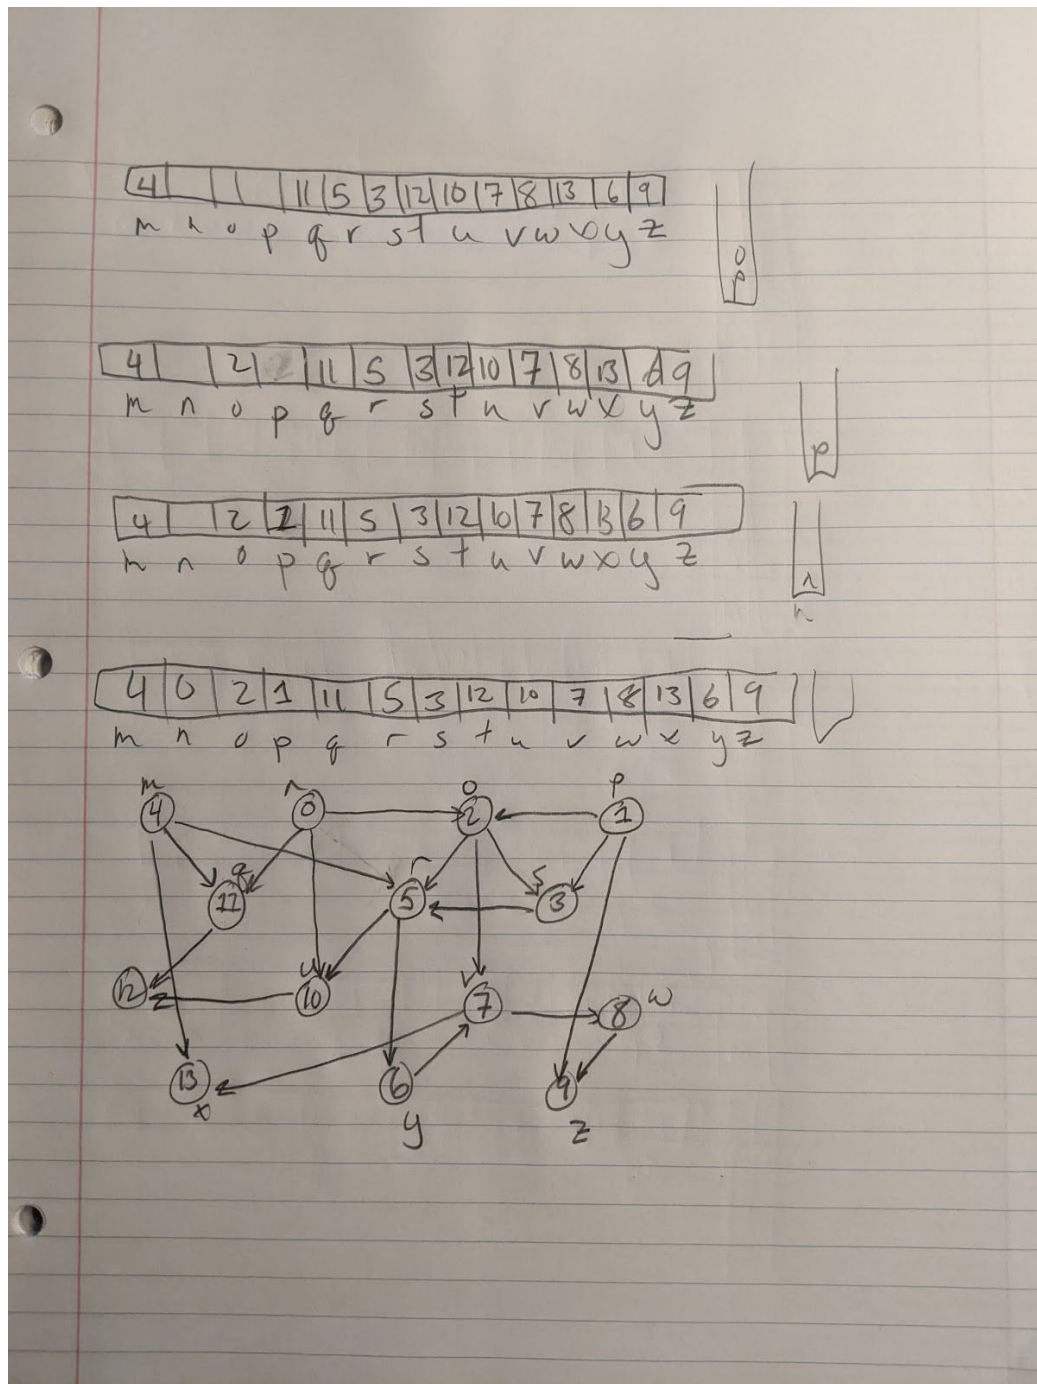 4 11 5 3 12 10 7 8 13 6 9
m n o p q r s t u v w x y z
o
p
4 2 11 5 3 12 10 7 8 13 6 9
m n o p q r s t u v w x y z
p
4 2 1 11 5 3 12 10 7 8 13 6 9
m n o p q r s t u v w x y z
n
n
4 0 2 1 11 5 3 12 10 7 8 13 6 9
m n o p q r s t u v w x y z
m n o p
4 0 2 1
q r s
11 5 3
u v w
12 10 7 8
13 6 9
x y z